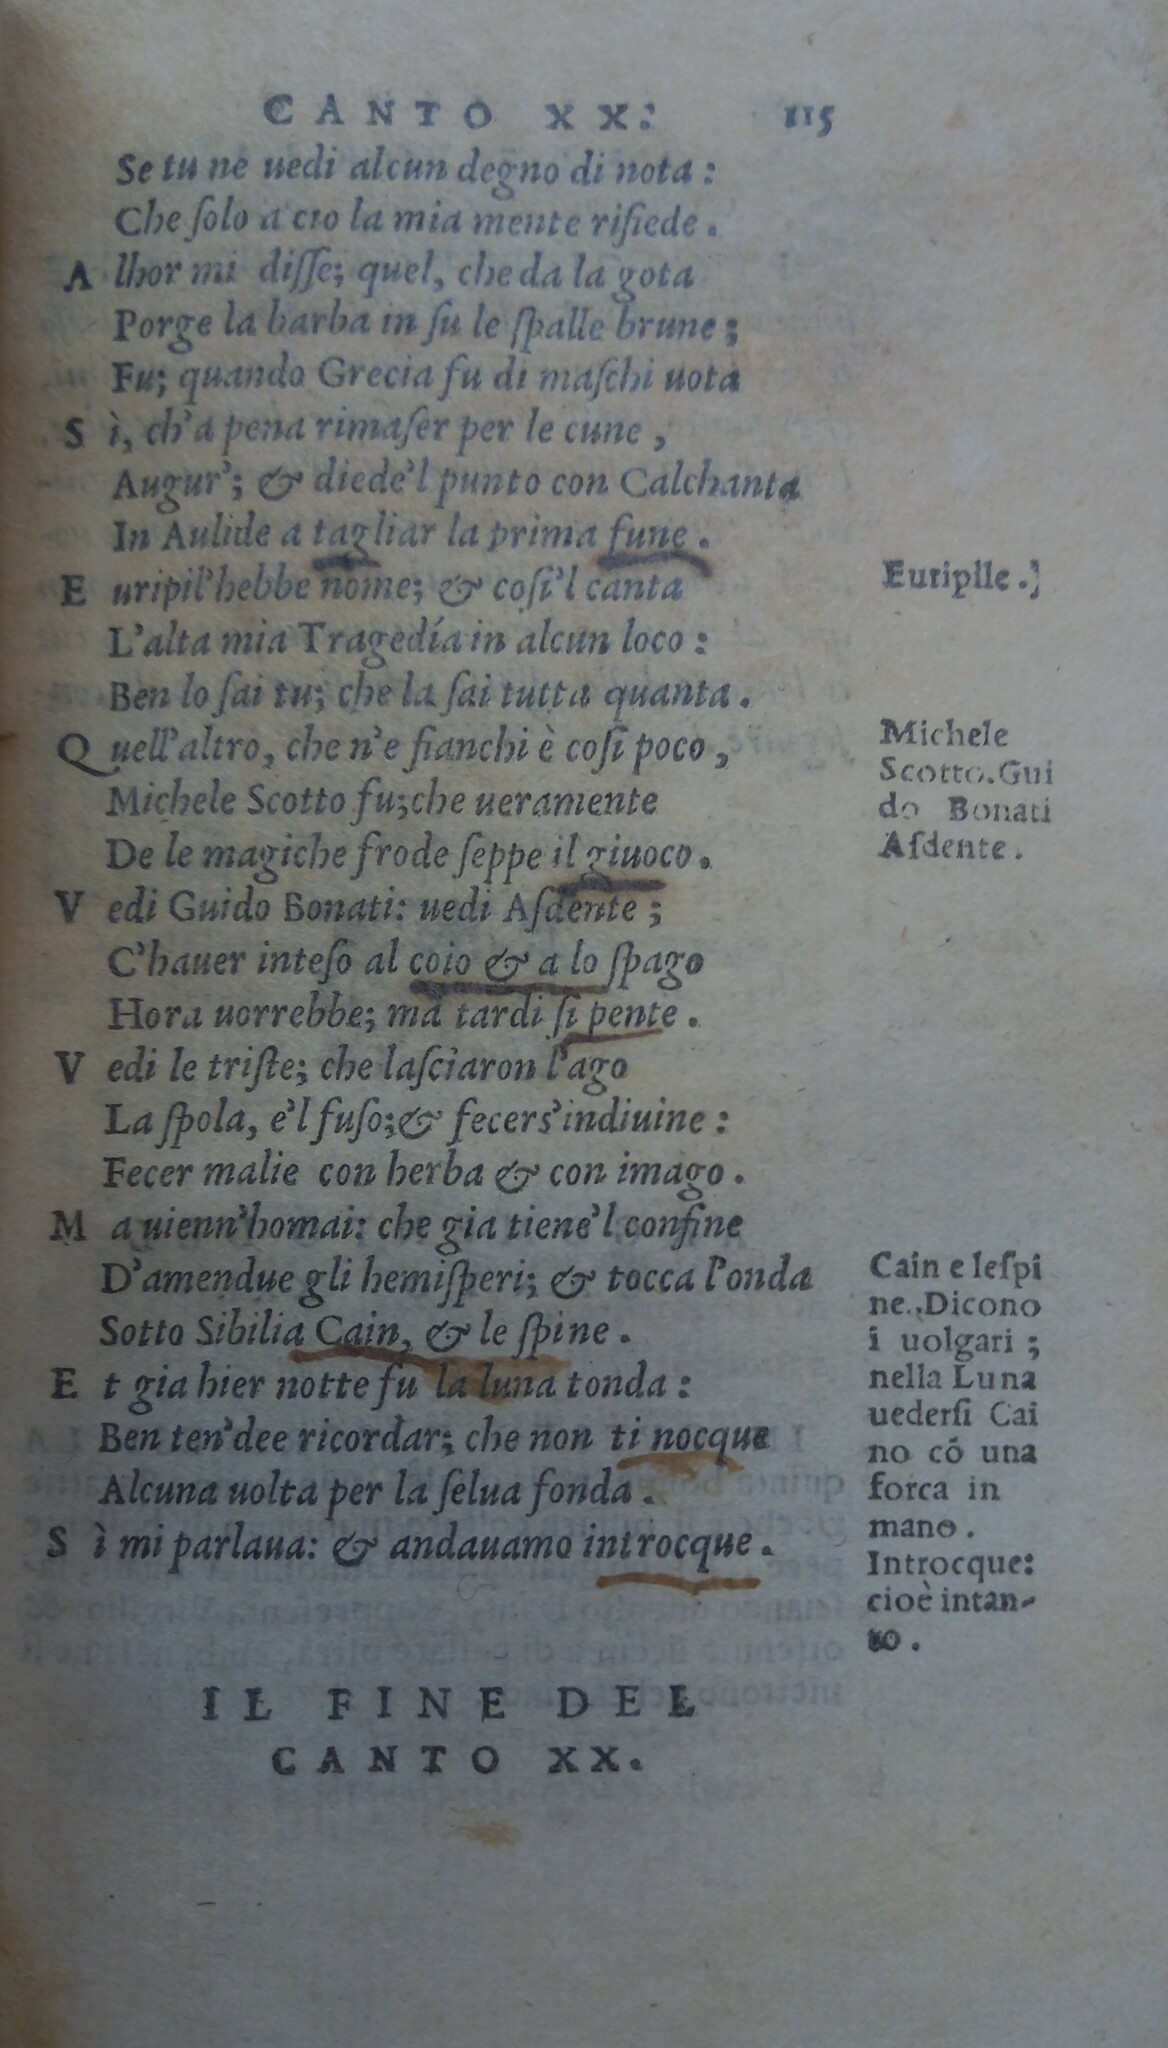 CANTO XX. 115
Se tu ne uedi alcun degno di nota :
Che ſolo a cio la mia mente riſiede .
A lhor mi diſſe; quel, che da la gota
Porge la barba in ſu le ſpalle brune ;
Fu; quando Grecia fu di maſchi uota
S ì, ch'a pena rimaſer per le cune ,
Augur'; & diede'l punto con Calchanta
In Aulide a tagliar la prima fune .
E uripil'hebbe nome; & coſi'l canta
Euripile .
L'alta mia Tragedía in alcun loco :
Ben lo ſai tu; che la ſai tutta quanta .
Q uell'altro, che n'e fianchi è coſi poco ,
Michele Scotto fu;che ueramente
De le magiche frode ſeppe il giuoco .
Michele
Scotto.Gui
do Bonati
Aſdente .
V edi Guido Bonati: uedi Aſdente ;
C'hauer inteſo al coio & a lo ſpago
Hora uorrebbe; ma tardi ſi pente .
V edi le triſte; che laſciaron l'ago
La ſpola, e'l fuſo;& fecerſ'indiuine :
Fecer malie con herba & con imago .
M a uienn'homai: che gia tiene'l confine
D'amendue gli hemiſperi; & tocca l'onda
Sotto Sibilia Cain, & le ſpine .
E t gia hier notte fu la luna tonda :
Ben ten'dee ricordar; che non ti nocque
Alcuna uolta per la ſelua fonda .
S ì mi parlaua: & andauamo introcque .
Cain e leſpi
ne. Dicono
i uolgari ;
nella Luna
uederſi Cai
no có una
forca in
mano .
Introcque:
cioè intan-
to .
IL FINE DEL
CANTO XX.